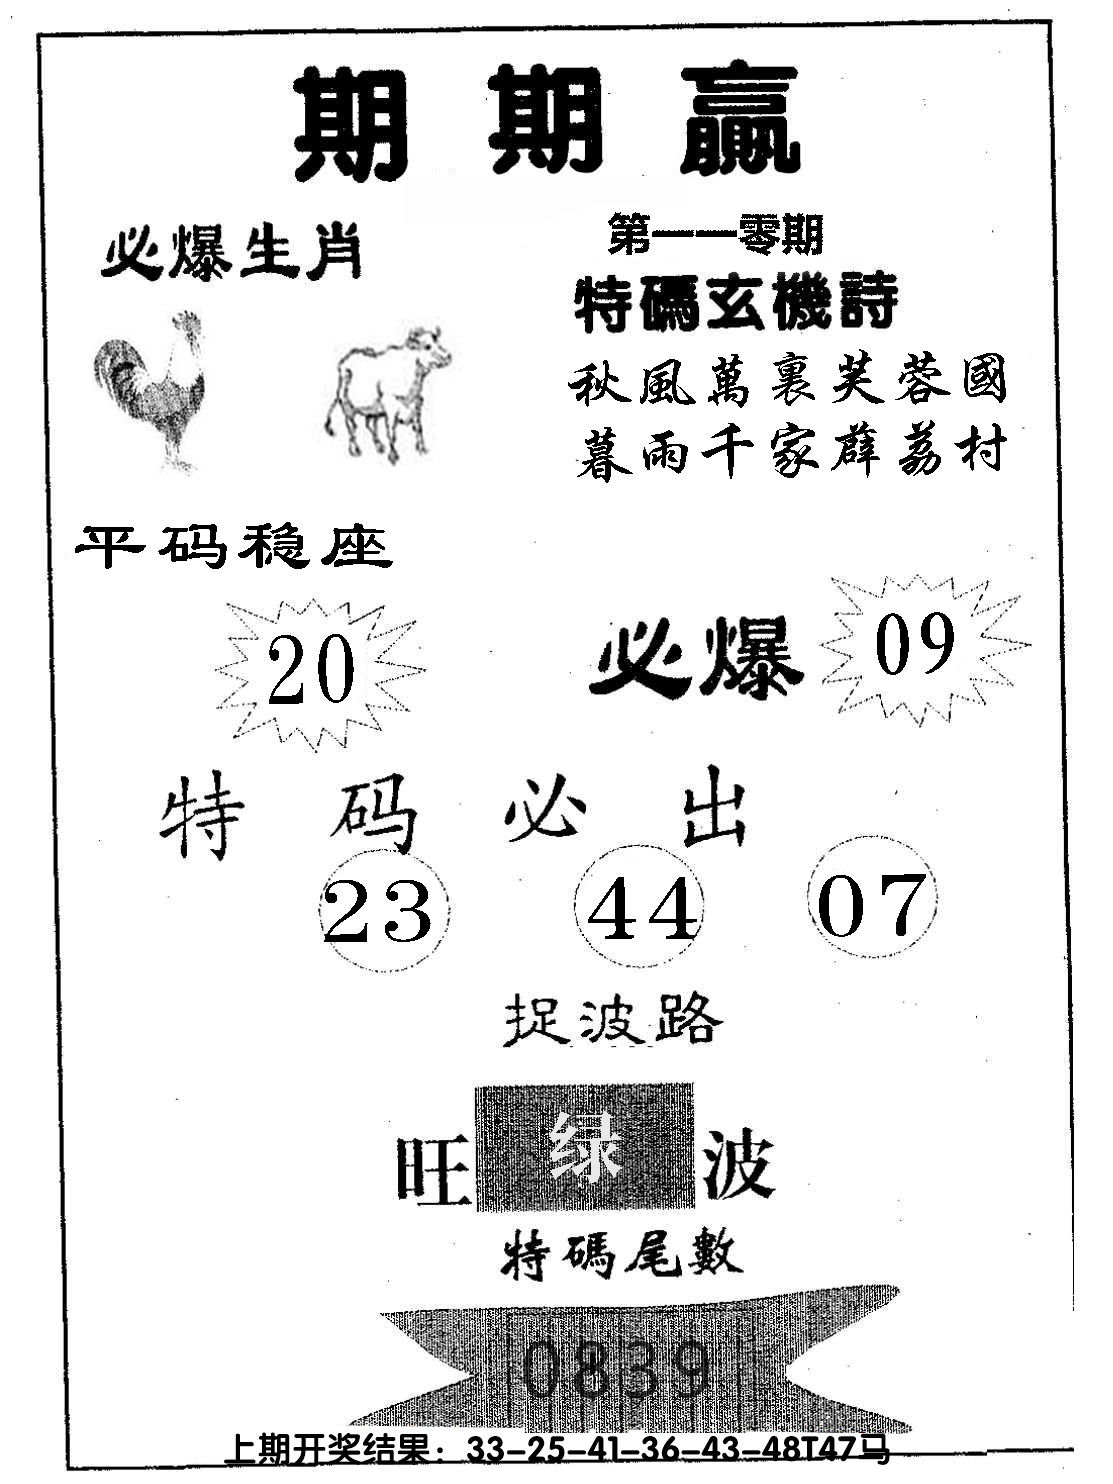 期期赢
必爆生肖
第一一零期
特碼玄機詩
秋風萬裏芙蓉國
暮雨千家薜荔村
平码稳座
20
必爆
09
特码必出
23 44 07
捉波路
旺 绿 波
特碼尾數
0839
上期开奖结果：33-25-41-36-43-48T47马